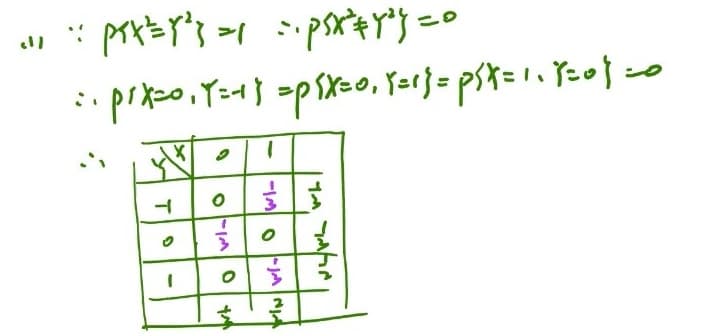 (1) ∵ P{X²=Y²}=1 ∴ P{X²≠Y²}=0
∴ P{X=0, Y=-1}=P{X=0, Y=1}=P{X=1、Y=0}=0
∴
Y X 0 1
-1 0 1/3 1/3
0 1/3 0 1/3
1 0 1/3